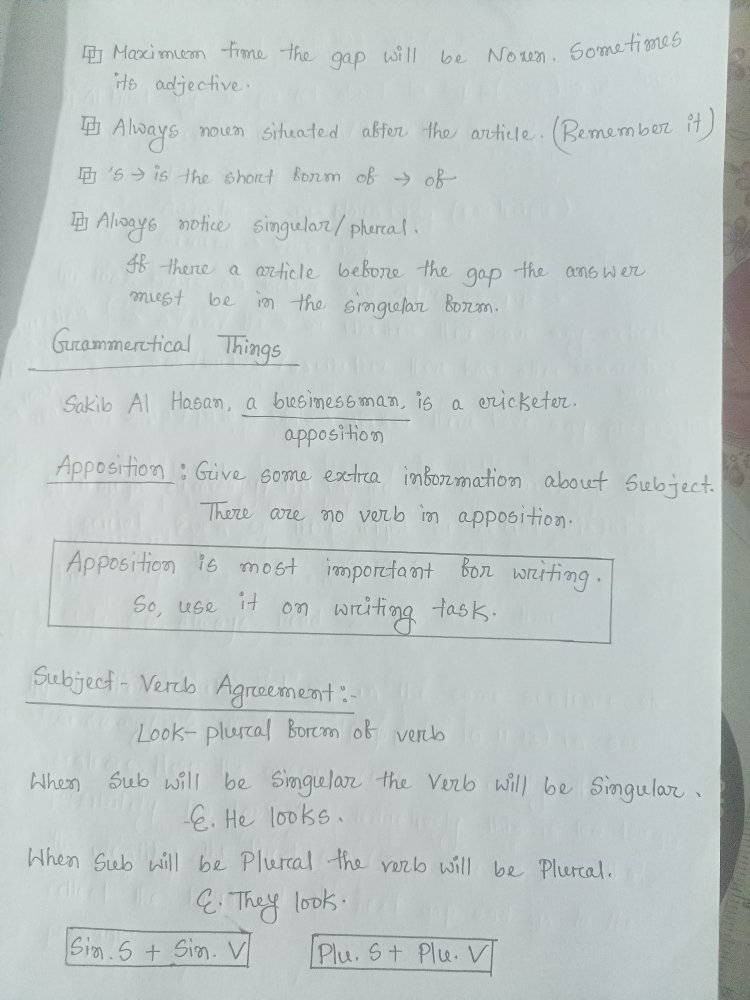 Maximum time the gap will be Noun. Sometimes
its adjective.
Always noun situated after the article. (Remember it)
's → is the short form of → of
Always notice singular/plural.
If there a article before the gap the answer
must be in the singular form.
Grammertical Things
Sakib Al Hasan, a businessman, is a cricketer.
apposition
Apposition : Give some extra information about Subject.
There are no verb in apposition.
Apposition is most important for writing.
So, use it on writing task.
Subject - Verb Agreement :-
Look - plural form of verb
When Sub will be Singular the Verb will be Singular.
E. He looks.
When Sub will be Plural the verb will be Plural.
E. They look.
Sin. S + Sin. V Plu. S + Plu. V